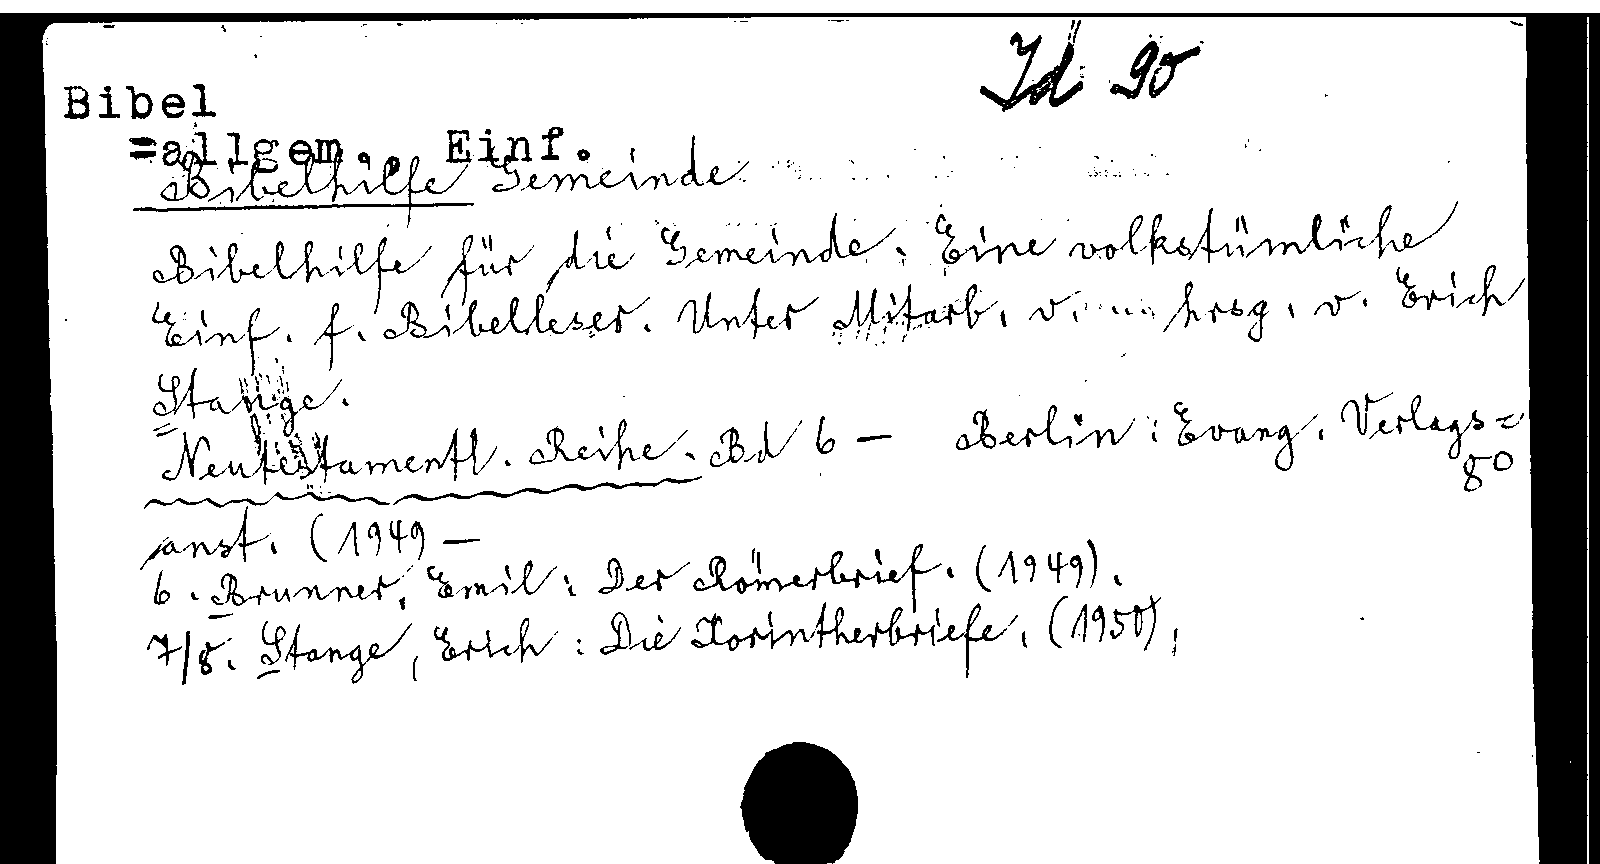 Jd 90
Bibel
=allgem., Einf.
Bibelhilfe Gemeinde
Bibelhilfe für die Gemeinde. Eine volkstümliche
Einf. f. Bibelleser. Unter Mitarb. v. hrsg. v. Erich
Stange.
Neutestamentl. Reihe. Bd 6 — Berlin: Evang. Verlags=
8°
anst. (1949 —
6. Brunner, Emil: Der Römerbrief. (1949).
7/8. Stange, Erich: Die Korintherbriefe. (1950).